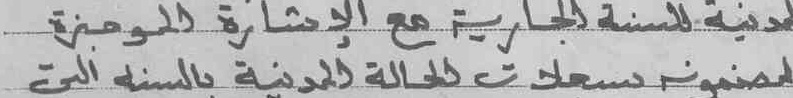 لمدنية للسنة الجارية مع الإشارة الموجزة
لمضمونه بسجلات الحالة المدنية بالسنة التي